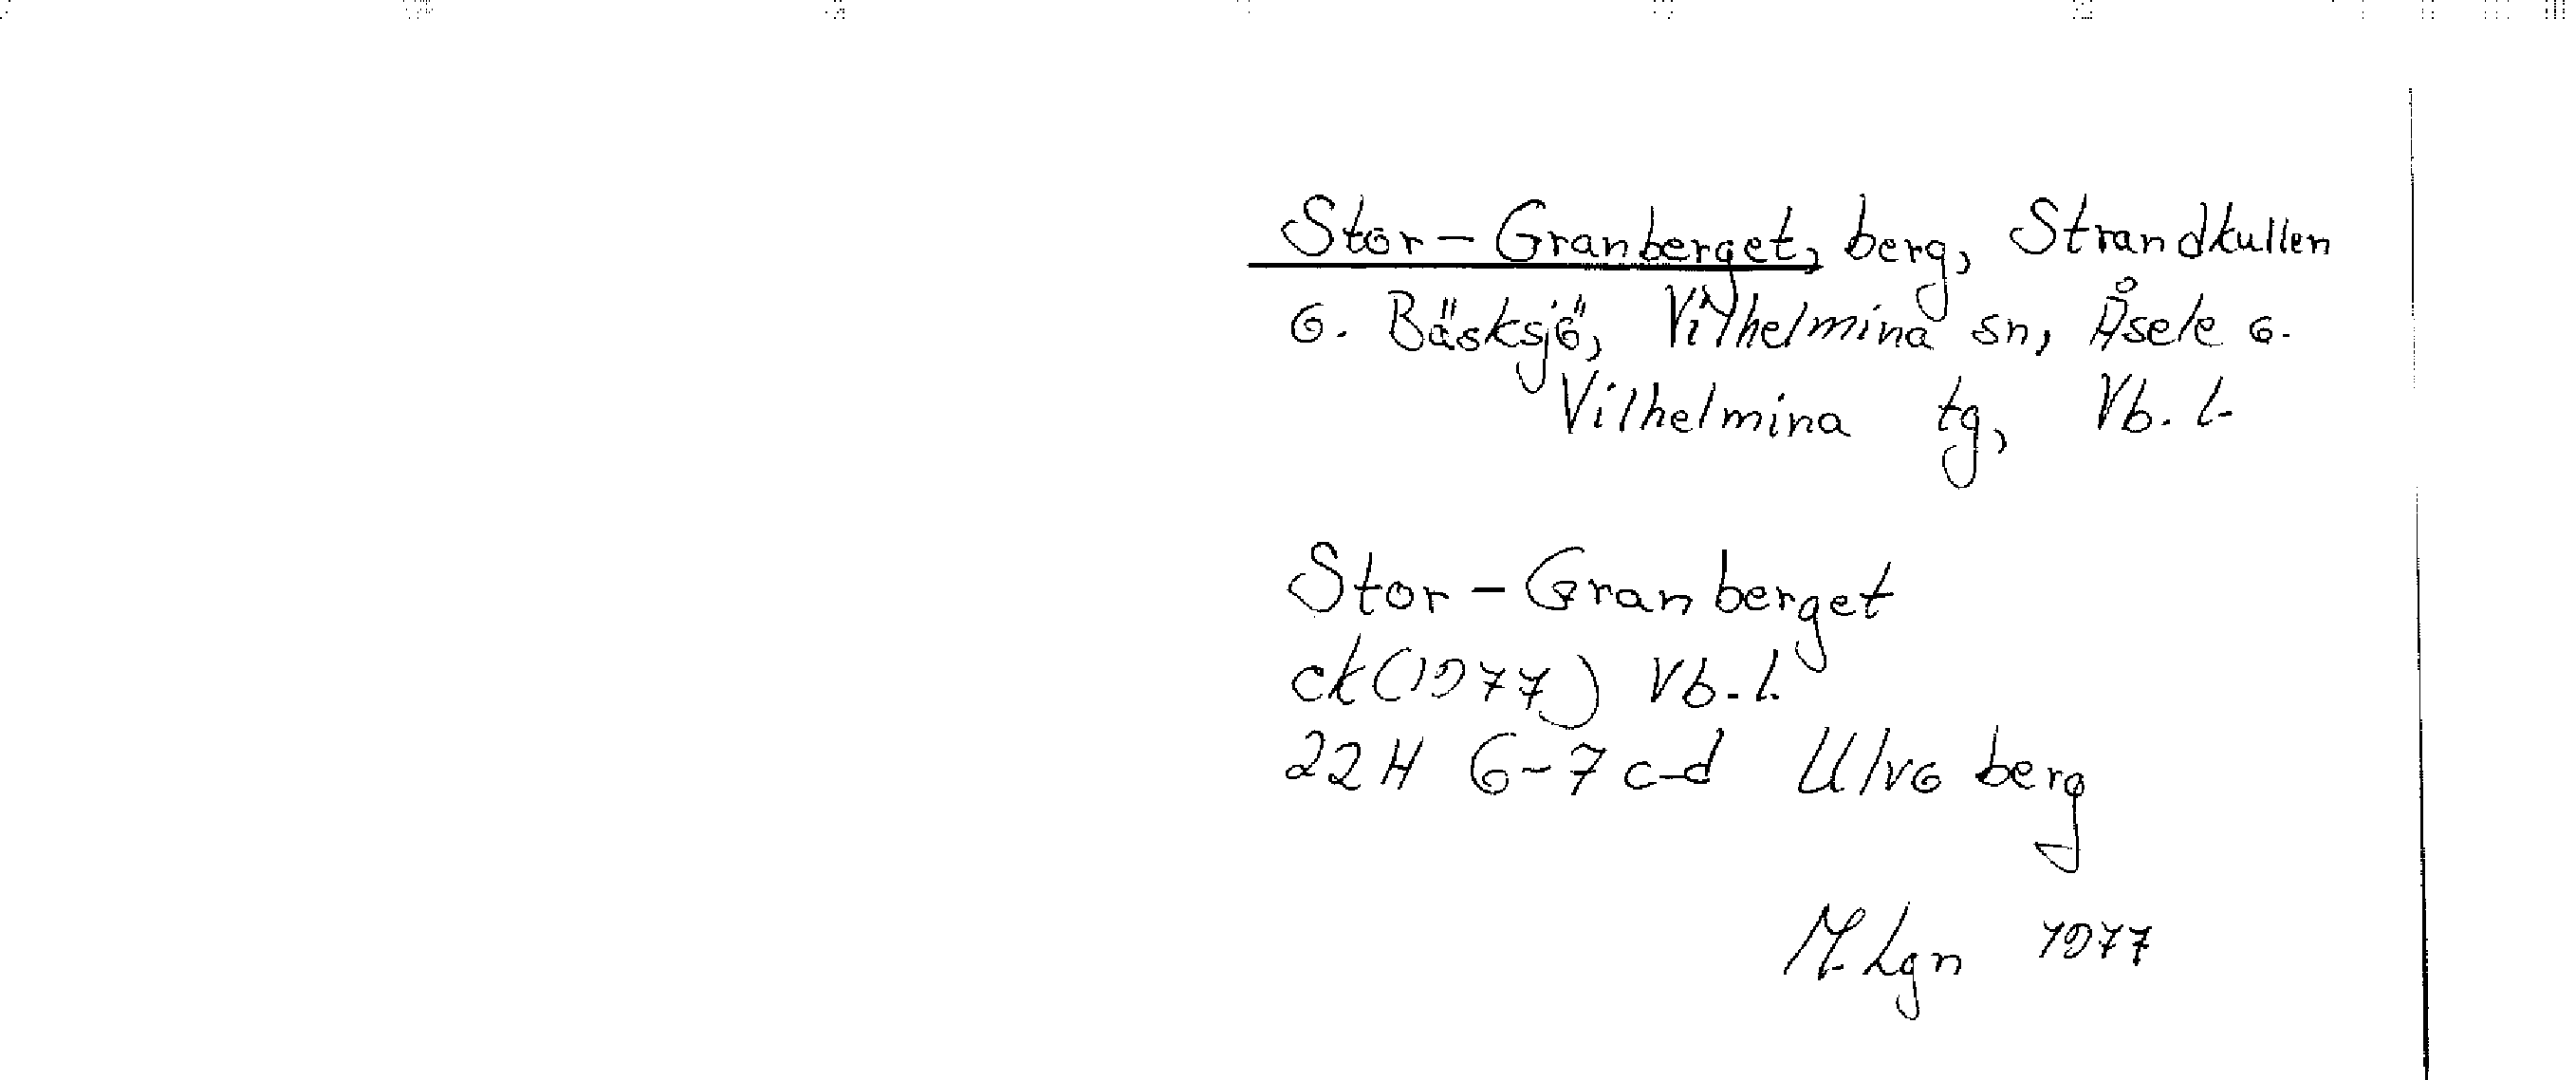 Stor-Granberget, berg, Strandkullen
o. Bäsksjö, Vilhelmina sn, Åsele o.
Vilhelmina tg, Vb. l.
Stor-Granberget
ek (1977) Vb. l.
22H 6-7 c-d Ulvoberg
M. Lgn 1977